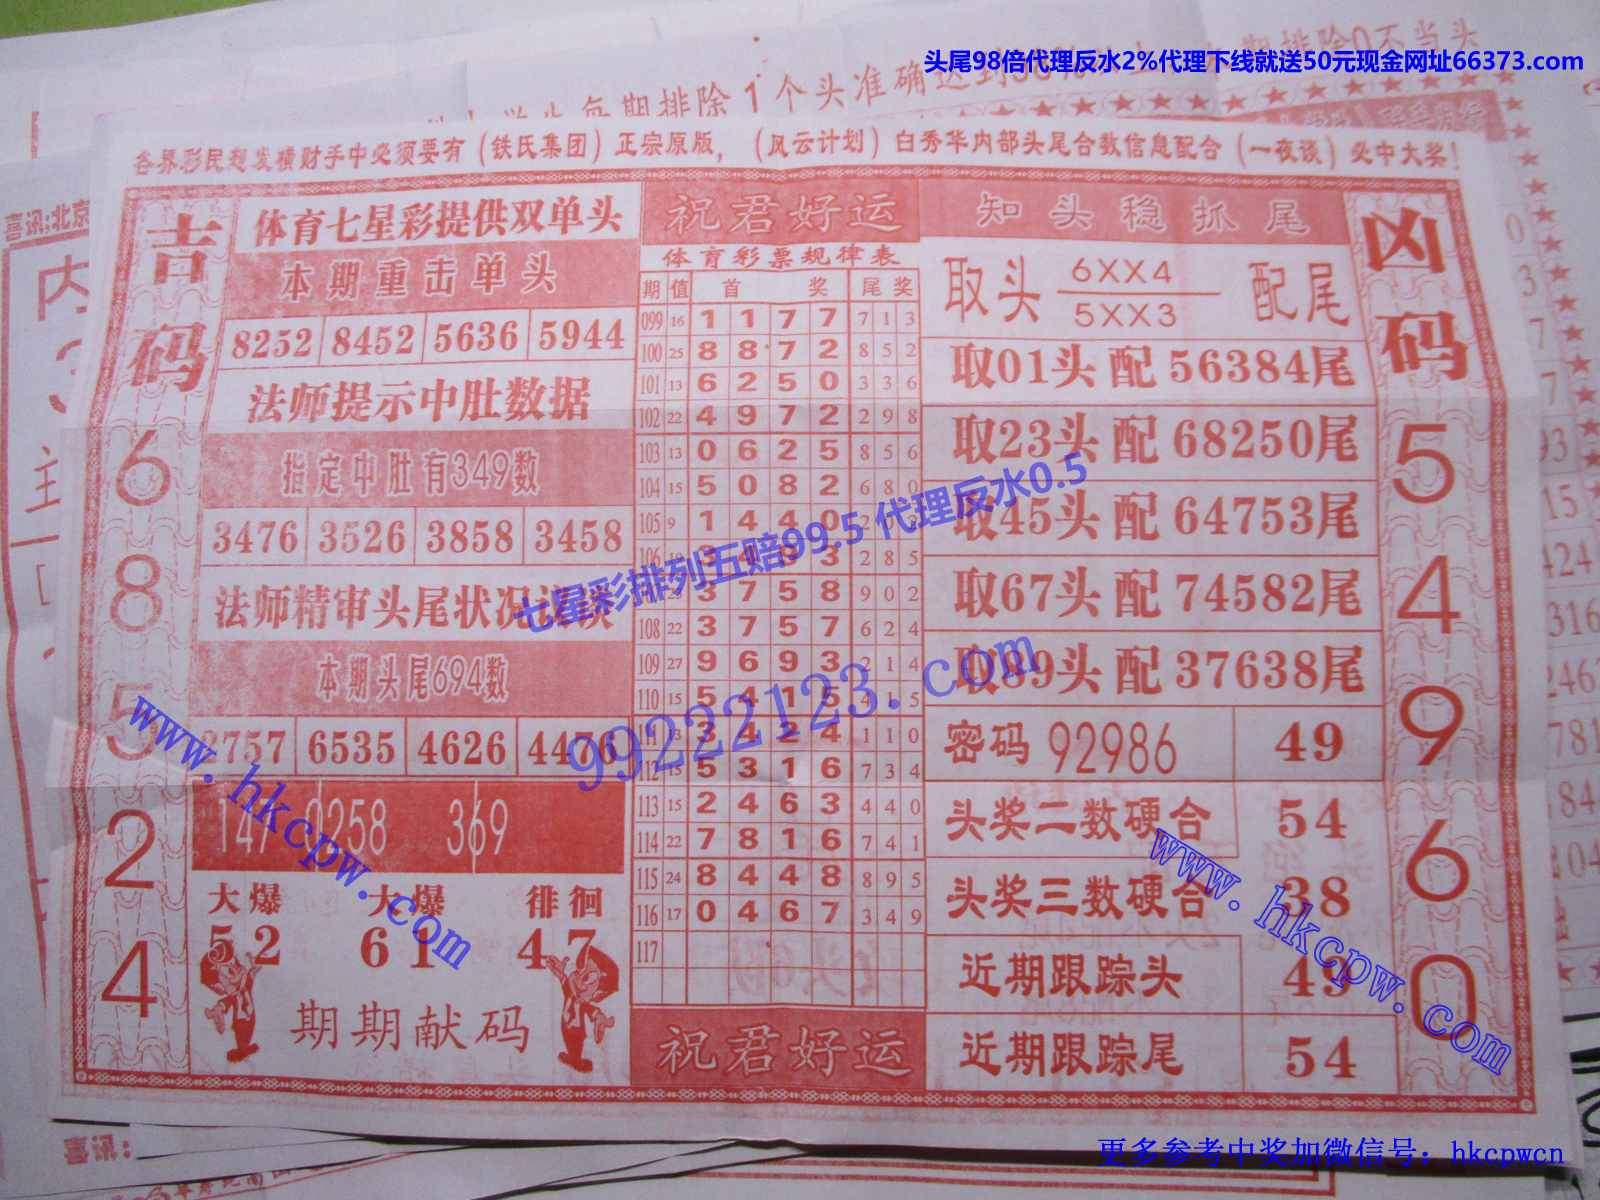 头尾98倍代理反水2%代理下线就送50元现金网址66373.com
每期排除1个头准确达到
期排除0不当头
各界彩民想发横财手中必须要有（铁氏集团）正宗原版，（风云计划）白秀华内部头尾合数信息配合（一夜谈）必中大奖！
喜讯;北京
吉码
6
8
5
2
4
体育七星彩提供双单头
本期重击单头
8252 8452 5636 5944
法师提示中肚数据
指定中肚有349数
3476 3526 3858 3458
法师精审头尾状况
本期头尾694数
2757 6535 4626 4476
147 0258 369
大爆 大爆 徘徊
52 61 47
期期献码
祝君好运
体育彩票规律表
期 值 首 奖 尾 奖
099 16 1 1 7 7 7 1 3
100 25 8 8 7 2 8 5 2
101 13 6 2 5 0 3 3 6
102 22 4 9 7 2 2 9 8
103 13 0 6 2 5 8 5 6
104 15 5 0 8 2 6 8 0
105 9 1 4 4 0 2
106 19 3 4 9 3 2 8 5
3 7 5 8 9 0 2
108 22 3 7 5 7 6 2 4
109 27 9 6 9 3 2 1 4
110 15 5 4 1 5 4 1 5
111 13 3 4 2 4 1 1 0
112 15 5 3 1 6 7 3 4
113 15 2 4 6 3 4 4 0
114 22 7 8 1 6 7 4 1
115 24 8 4 4 8 8 9 5
116 17 0 4 6 7 3 4 9
117
祝君好运
知头稳抓尾
取头 6XX4 配尾
5XX3
取01头 配 56384尾
取23头 配 68250尾
取45头 配 64753尾
取67头 配 74582尾
取89头 配 37638尾
密码 92986 49
头奖二数硬合 54
头奖三数硬合 38
近期跟踪头 49
近期跟踪尾 54
凶码
5
4
9
6
0
七星彩排列五赔99.5 代理反水0.5
99222123.com
www.hkcpw.com
www.hkcpw.com
喜讯;
更多参考中奖加微信号：hkcpwcn